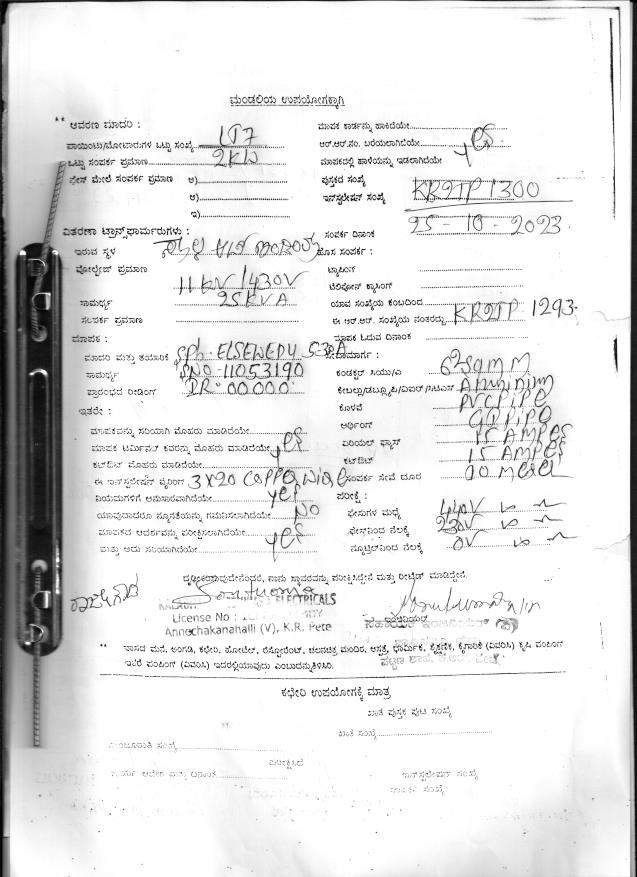 ಮಂಡಲಿಯ ಉಪಯೋಗಕ್ಕಾಗಿ
** ಆವರಣ ಮಾದರಿ :
ಮಾಪಕ ಕಾರ್ಡನ್ನು ಹಾಕಿದೆಯೇ
ಪಾಯಿಂಟು/ಮೋಟಾರುಗಳ ಒಟ್ಟು ಸಂಖ್ಯೆ
ಆರ್.ಆರ್.ನಂ. ಬರೆಯಲಾಗಿದೆಯೇ
ಒಟ್ಟು ಸಂಪರ್ಕ ಪ್ರಮಾಣ 2KW
ಮಾಪಕದಲ್ಲಿ ಹಾಳೆಯನ್ನು ಇಡಲಾಗಿದೆಯೇ yes
ಫೇಸ್ ಮೇಲೆ ಸಂಪರ್ಕ ಪ್ರಮಾಣ ಅ)
ಪುಸ್ತಕದ ಸಂಖ್ಯೆ
ಆ)
ಇನ್‌ಸ್ಟಲೇಷನ್ ಸಂಖ್ಯೆ KR2TP 1300
ಇ)
ಸಂಪರ್ಕ ದಿನಾಂಕ 25-10-2023
ವಿತರಣಾ ಟ್ರಾನ್ಸ್‌ಫಾರ್ಮರುಗಳು :
ಹೊಸ ಸಂಪರ್ಕ :
ಇರುವ ಸ್ಥಳ
ಟ್ಯಾಪಿಂಗ್
ವೋಲ್ಟೇಜ್ ಪ್ರಮಾಣ 11KV/430V
ಟೆಲಿಫೋನ್ ಕ್ರಾಸಿಂಗ್
ಸಾಮರ್ಥ್ಯ 25KVA
ಯಾವ ಸಂಖ್ಯೆಯ ಕಂಬದಿಂದ
ಸಂಪರ್ಕ ಪ್ರಮಾಣ
ಈ ಆರ್.ಆರ್. ಸಂಖ್ಯೆಯ ನಂತರದ್ದು KR2TP 1293
ಮಾಪಕ :
ಮಾಪಕ ಓದುವ ದಿನಾಂಕ
ಮಾದರಿ ಮತ್ತು ತಯಾರಿಕೆ SPh-ELSEWEDY 5-30A
ಸೇವಾಮಾರ್ಗ :
ಸಾಮರ್ಥ್ಯ SNO-11053190
ಕಂಡಕ್ಟರ್ ಸಿಯು/ಎ
ಪ್ರಾರಂಭದ ರೀಡಿಂಗ್ IR-00000
ಕೊಳವೆ PVC PIPE
ಇತರೇ :
ಅರ್ಥಿಂಗ್ GI PIPE
ಮಾಪಕವನ್ನು ಸರಿಯಾಗಿ ಮೊಹರು ಮಾಡಿದೆಯೇ
ಏರಿಯಲ್ ಫ್ಯೂಸ್ 15 AMPES
ಮಾಪಕ ಟರ್ಮಿನಲ್ ಕವರನ್ನು ಮೊಹರು ಮಾಡಿದೆಯೇ yes
ಕಟ್‌ಔಟ್ 15 AMPES
ಕಟ್‌ಔಟ್ ಮೊಹರು ಮಾಡಿದೆಯೇ
ಸಂಪರ್ಕ ಸೇವೆ ದೂರ
ಈ ಇನ್‌ಸ್ಟಲೇಷನ್ ವೈರಿಂಗ್ 3X20
ನಿಯಮಗಳಿಗೆ ಅನುಸಾರವಾಗಿದೆಯೇ yes
ಪರೀಕ್ಷೆ :
ಯಾವುದಾದರೂ ನ್ಯೂನತೆಯನ್ನು ಗಮನಿಸಲಾಗಿದೆಯೇ NO
ಫೇಸುಗಳ ಮಧ್ಯೆ 440V
ಮಾಪಕದ ಆದರ್ಶವನ್ನು ಪರೀಕ್ಷಿಸಲಾಗಿದೆಯೇ
ಫೇಸ್‌ನಿಂದ ನೆಲಕ್ಕೆ 230V
ಮತ್ತು ಅದು ಸರಿಯಾಗಿದೆಯೇ yes
ನ್ಯೂಟ್ರಲ್‌ನಿಂದ ನೆಲಕ್ಕೆ 0V
ದೃಢೀಕರಿಸುವುದೇನೆಂದರೆ, ನಾನು ಸ್ಥಾವರವನ್ನು ಪರೀಕ್ಷಿಸಿದ್ದೇನೆ ಮತ್ತು ರೀಚೆಕ್ ಮಾಡಿದ್ದೇನೆ.
ELECTRICALS
License No :
Annechakanahalli (V), K.R. Pete
** ವಾಸದ ಮನೆ, ಅಂಗಡಿ, ಕಛೇರಿ, ಹೋಟೆಲ್, ರೆಸ್ಟೋರೆಂಟ್, ಚಲನಚಿತ್ರ ಮಂದಿರ, ಆಸ್ಪತ್ರೆ, ಧಾರ್ಮಿಕ, ಶೈಕ್ಷಣಿಕ, ಕೈಗಾರಿಕೆ (ವಿವರಿಸಿ) ಕೃಷಿ ಪಂಪಿಂಗ್
ಇತರೆ ಪಂಪಿಂಗ್ (ವಿವರಿಸಿ) ಇದರಲ್ಲಿಯಾವುದು ಎಂಬುದನ್ನುತಿಳಿಸಿರಿ.
ಕಛೇರಿ ಉಪಯೋಗಕ್ಕೆ ಮಾತ್ರ
ಖಾತೆ ಪುಸ್ತಕ ಪುಟ ಸಂಖ್ಯೆ
**
ಖಾತೆ ಸಂಖ್ಯೆ
ಮಂಜೂರಾತಿ ಸಂಖ್ಯೆ
ಪರೀಕ್ಷಿಸಿದೆ
ಕಾರ್ಯ ಆದೇಶ ಮತ್ತು ದಿನಾಂಕ
ಇನ್‌ಸ್ಟಲೇಷನ್ ಸಂಖ್ಯೆ
ಸಂಪರ್ಕ ಸಂಖ್ಯೆ